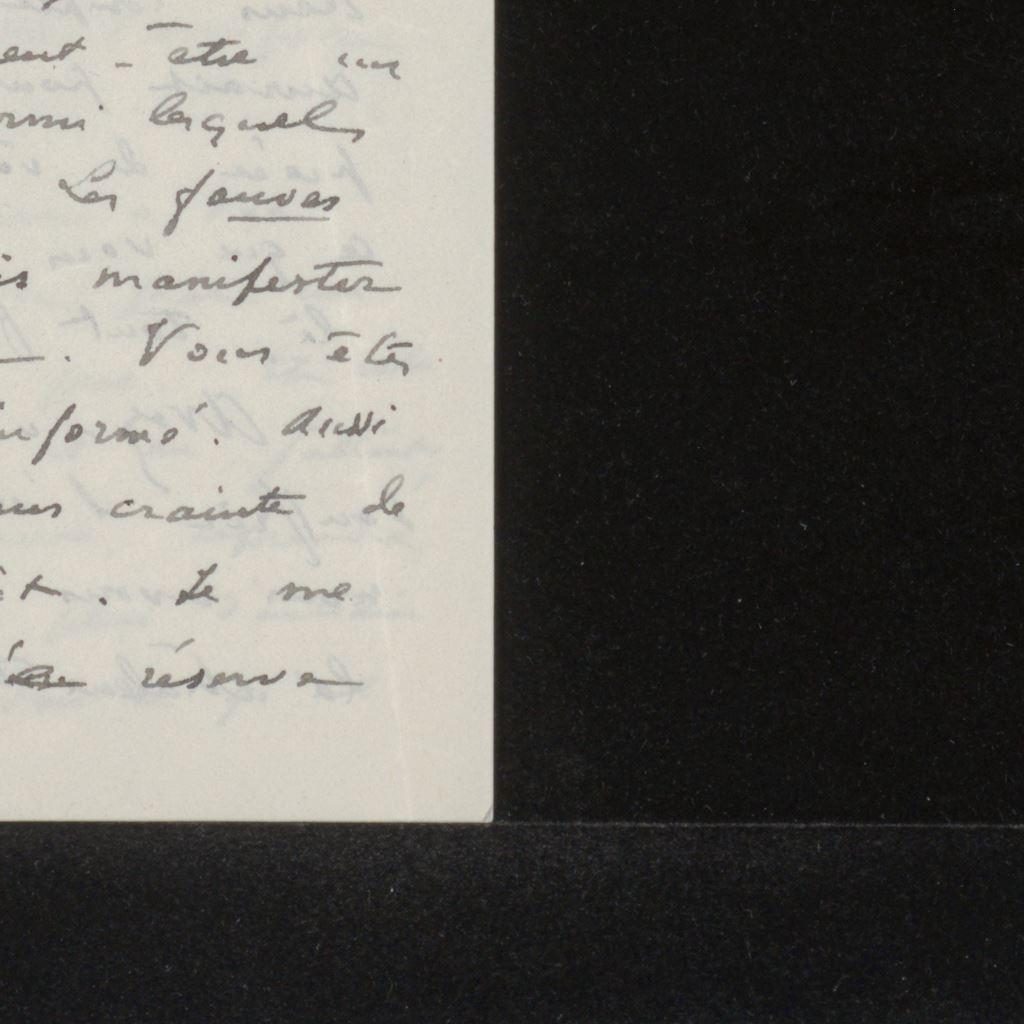 eut-être un
rmi lesquels
Les fauves
is manifester
. Vous êtes
informé. Aussi
crainte de
. Je me
réserve